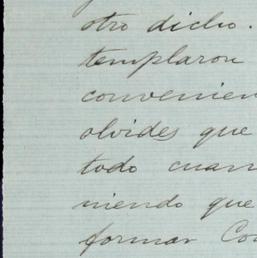 otro dicho.
templaron
convenien
olvides que
todo cuan
niendo que
formar Co